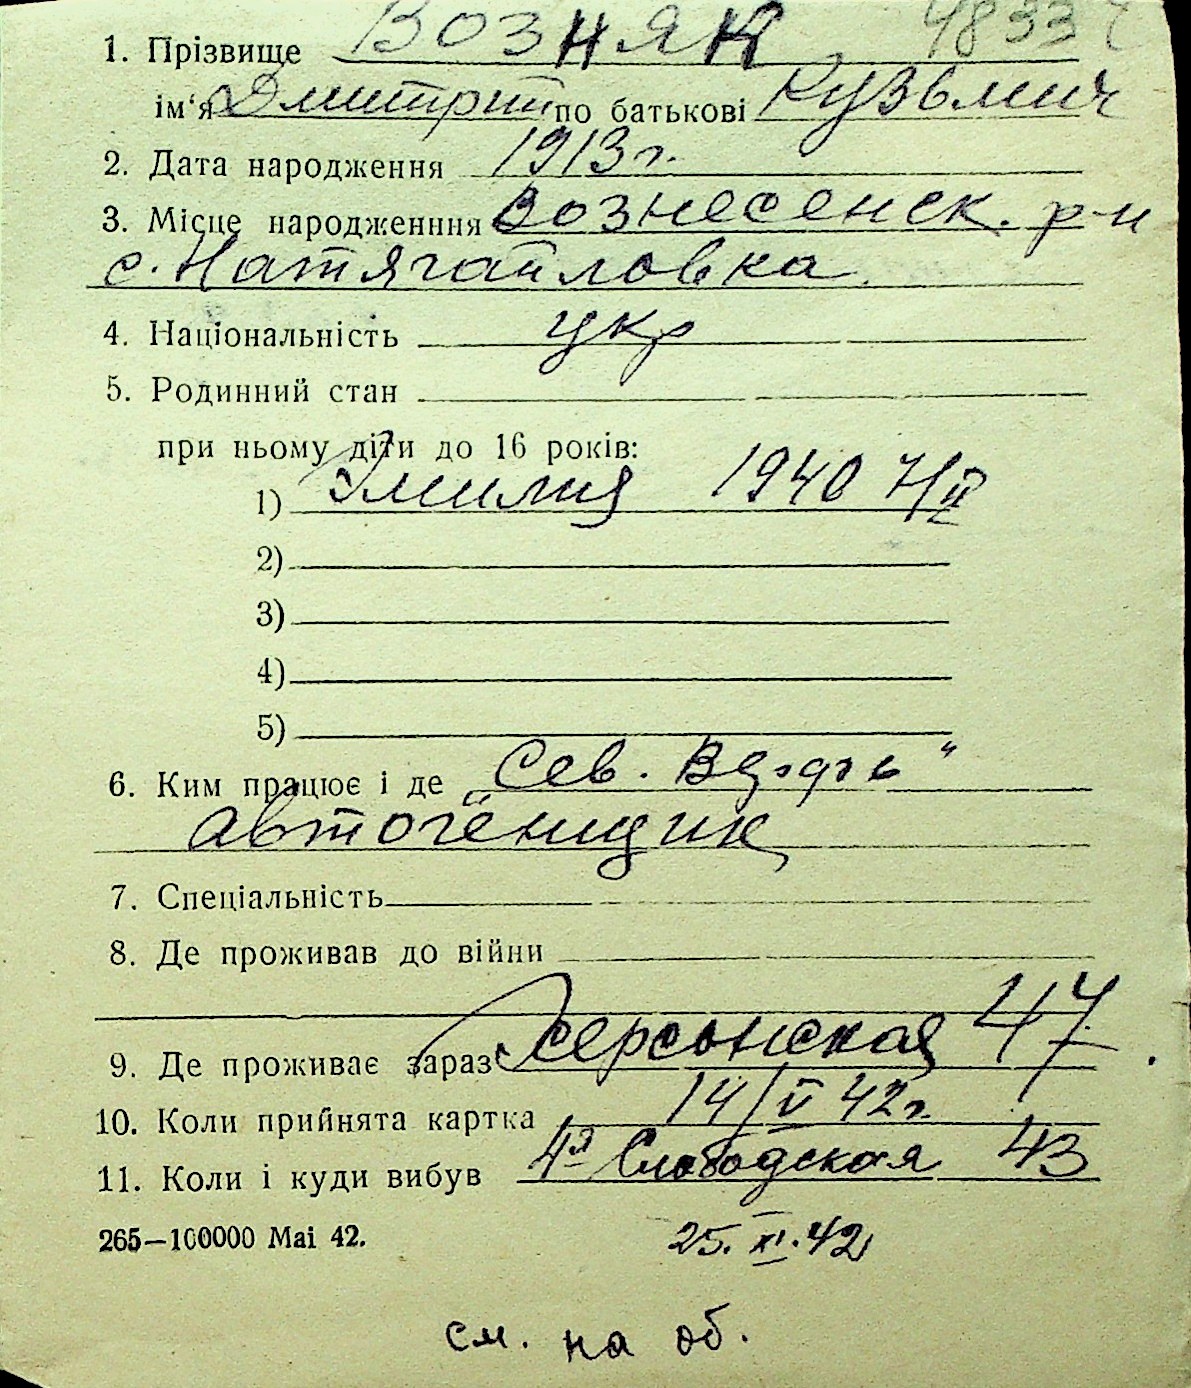 1. Прізвище ВОЗНЯК 4833
ім‘я Дмитрий по батькові Кузьмич
2. Дата народження 1913 г.
3. Місце народженння Вознесенск. р-н
с. Натягайловка
4. Національність укр
5. Родинний стан
при ньому діти до 16 років:
1) Эмилия 1940 7/II
2)
3)
4)
5)
6. Ким працює і де „Сев. Верфь“
автогенщик
7. Спеціальність
8. Де проживав до війни
9. Де проживає зараз Херсонская 47.
10. Коли прийнята картка 14/V 42 г.
11. Коли і куди вибув 4я Слободская 43
265—100000 Маі 42.
25. XI. 42
см. на об.